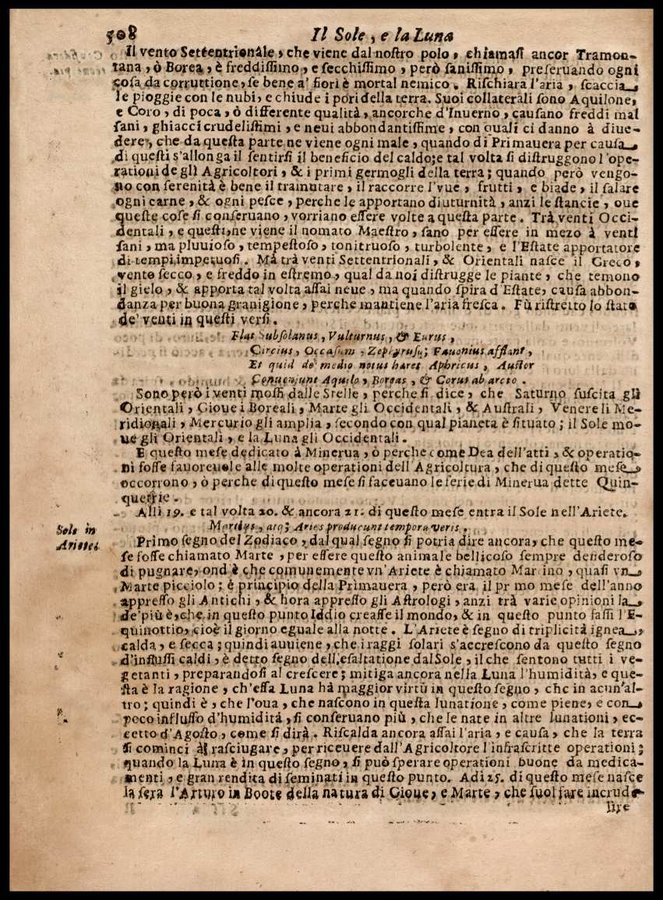 508 Il Sole, e la Luna
Il vento Settentrionale, che viene dal nostro polo, chiamasi ancor Tramon-
tana, ò Borea, è freddissimo, e secchissimo, però sanissimo, preseruando ogni
cosa da corruttione, se bene a' fiori è mortal nemico. Rischiara l'aria, scaccia
le pioggie con le nubi, e chiude i pori della terra. Suoi collaterali sono Aquilone,
e Coro, di poca, ò differente qualità, ancorche d'Inuerno, causano freddi mal
sani, ghiacci crudelissimi, e neui abbondantissime, con quali ci danno à diue-
dere, che da questa parte ne viene ogni male, quando di Primauera per causa
di questi s'allonga il sentirsi il beneficio del caldo; e tal volta si distruggono l'ope-
rationi de gli Agricoltori, & i primi germogli della terra; quando però vengo-
no con serenità è bene il tramutare, il raccorre l'vue, frutti, e biade, il salare
ogni carne, & ogni pesce, perche le apportano diuturnità, anzi le stancie, oue
queste cose si conseruano, vorriano essere volte a questa parte. Trà venti Occi-
dentali, e questi, ne viene il nomato Maestro, sano per essere in mezo à venti
sani, ma pluuioso, tempestoso, tonitruoso, turbolente, e l'Estate apportatore
di tempi impetuosi. Mà trà venti Settentrionali, & Orientali nasce il Greco,
vento secco, e freddo in estremo, qual da noi distrugge le piante, che temono
il gielo, & apporta tal volta assai neue, ma quando spira d'Estate, causa abbon-
danza per buona granigione, perche mantiene l'aria fresca. Fù ristretto lo stato
de' venti in questi versi.
Flat Subsolanus, Vulturnus, & Eurus,
Circius, Occasum, Zephirusq; Fauonius afflant,
Et quid de medio notus hæret Aphricus, Auster
Conueniunt Aquilo, Boreas, & Corus ab arcto.
Sono però i venti mossi dalle Stelle, perche si dice, che Saturno suscita gli
Orientali, Gioue i Boreali, Marte gli Occidentali, & Australi, Venere li Me-
ridionali, Mercurio gli amplia, secondo con qual pianeta è situato; il Sole mo-
ue gli Orientali, e la Luna gli Occidentali.
E questo mese dedicato à Minerua, ò perche come Dea dell'atti, & operatio-
ni fosse fauoreuole alle molte operationi dell'Agricoltura, che di questo mese
occorrono, ò perche di questo mese si faceuano le ferie di Minerua dette Quin-
quetrie.
Alli 19. e tal volta 20. & ancora 21. di questo mese entra il Sole nell'Ariete.
Sole in
Ariete.
Martius, Aries producunt tempora veris,
Primo segno del Zodiaco, dal qual segno si potria dire ancora, che questo me-
se fosse chiamato Marte, per essere questo animale bellicoso sempre desideroso
di pugnare, ond'è che comunemente vn'Ariete è chiamato Martino, quasi vn
Marte picciolo; è principio della Primauera, però era il primo mese dell'anno
appresso gli Antichi, & hora appresso gli Astrologi, anzi trà varie opinioni la
de'più è, che in questo punto Iddio creasse il mondo, & in questo punto fassi l'E-
quinottio, cioè il giorno eguale alla notte. L'Ariete è segno di triplicità ignea,
calda, e secca; quindi auuiene, che i raggi solari s'accrescono da questo segno
d'influssi caldi, è detto segno dell'esaltatione dal Sole, il che sentono tutti i ve-
getanti, preparandosi al crescere; mitiga ancora nella Luna l'humidità, e que-
sta è la ragione, ch'essa Luna hà maggior virtù in questo segno, che in acun'al-
tro; quindi è, che l'oua, che nascono in questa lunatione, come piene, e con
poco influsso d'humidità, si conseruano più, che le nate in altre lunationi, ec-
cetto d'Agosto, come si dirà. Riscalda ancora assai l'aria, e causa, che la terra
si cominci à rasciugare, per riceuere dall'Agricoltore l'infrascritte operationi;
quando la Luna è in questo segno, si può sperare operationi buone da medica-
menti, e gran rendita di seminati in questo punto. Adi 25. di questo mese nasce
la sera l'Arturo in Boote della natura di Gioue, e Marte, che suol fare incrude-
lire